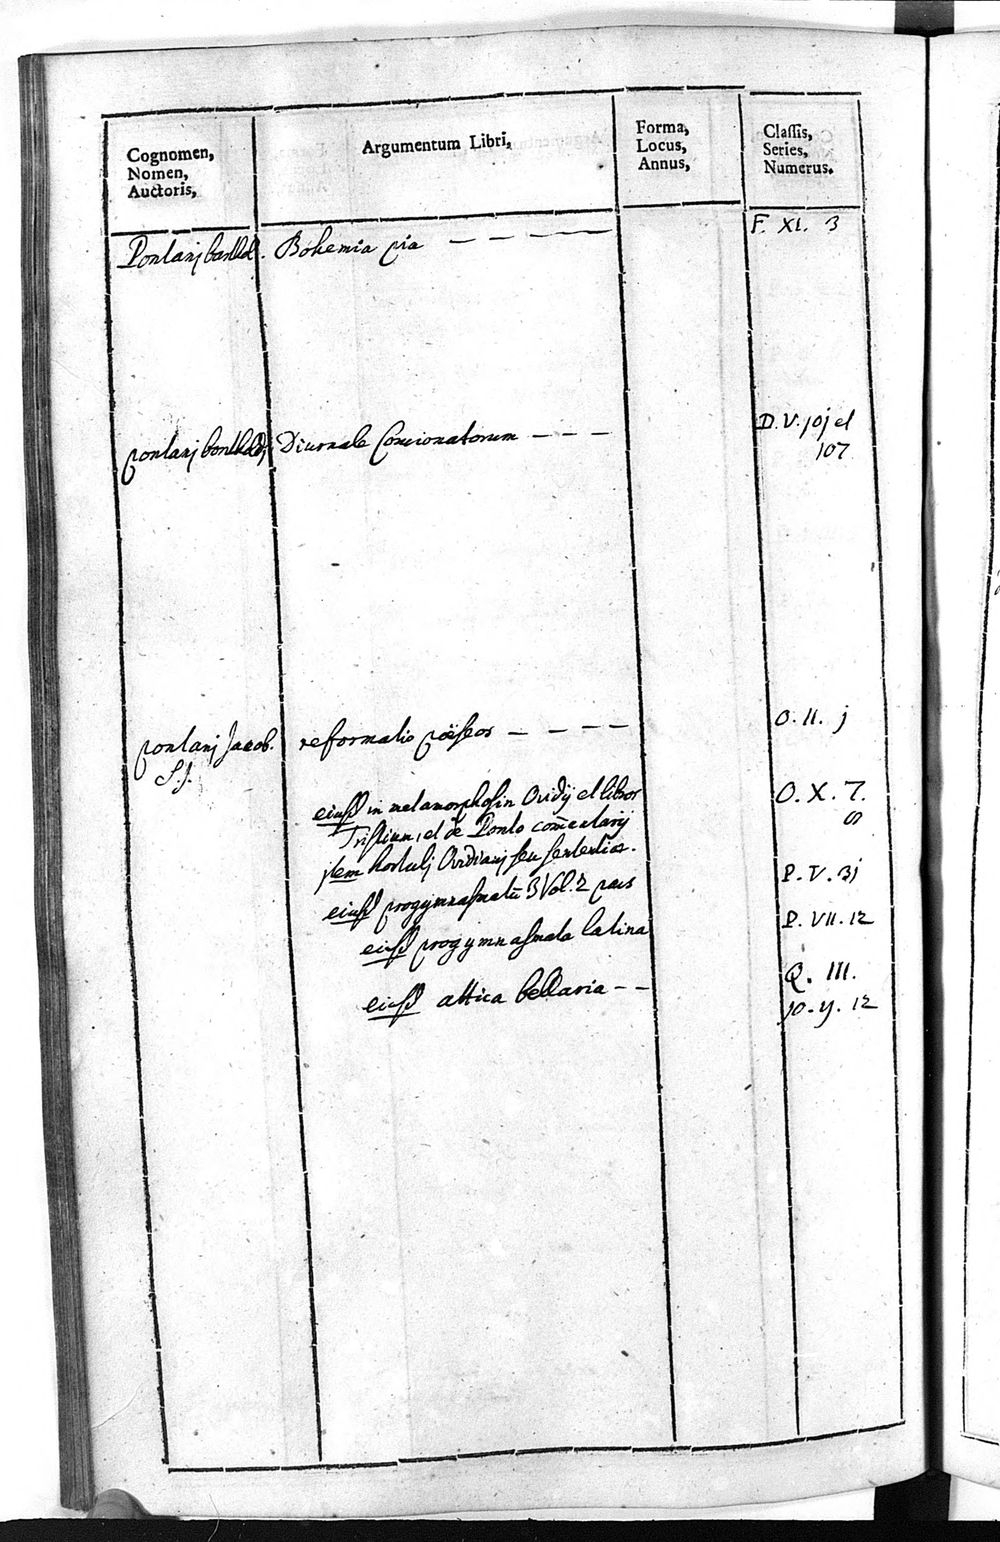 Cognomen,
Nomen,
Auctoris,
Argumentum Libri,
Forma,
Locus,
Annus,
Classis,
Series,
Numerus.
Pontanj barthol. Bohemia pia — — — — — F. XI. 3
pontanj barthol Diurnale Concionatorum — — — D. V. joj et
107
pontanj Jacob. reformatio poëseos — — — — O. II. j
S.J.
eiusd in metamorphosin Ovidij et libros O. X. 7.
Tristium, et de Ponto com̄entarij 8
jtem hortulj Ovidianj seu sententiae.
eiusd progymnasmatū 3 Vol: 2 pars P. V. 3j
eiusd progymnasmata latina P. VII. 12
eiusd attica bellaria — — Q. III.
jo. y. 12